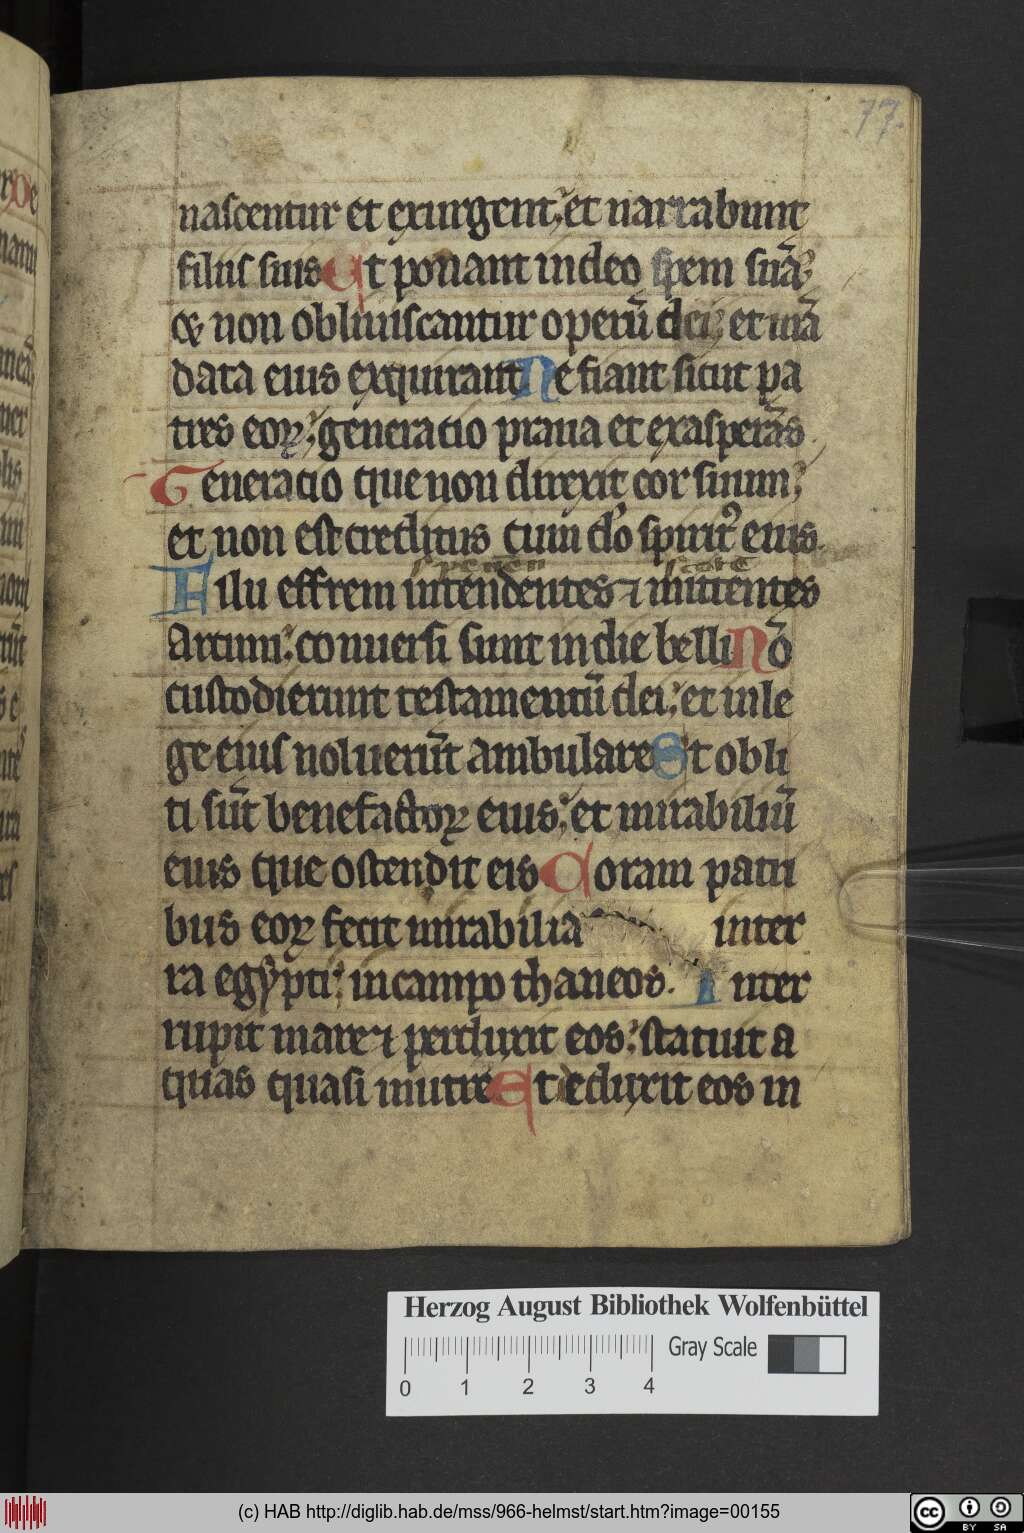 77.
nascentur et exurgent; et narrabunt
filiis suis Et ponant in deo spem suā;
et non obliuiscantur operū dei; et mā
data eius exquirant Ne fiant sicut pa
tres eoꝝ; generacio praua et exasperās
Generacio que non direxit cor suum;
et non est creditus cum dō spiritꝰ eius.
Filii effrem intendentes ⁊ mittentes
Artum; conuersi sunt in die belli Nō
custodierunt testamentū dei; et in le
ge eius noluerūt ambulare Et obli
ti sūt benefactoꝝ eius; et mirabiliū
eius que ostendit eis Coram patri
bus eoꝝ fecit mirabilia inter
ra egypti; in campo thaneos. Inter
rupit mare ⁊ perduxit eos; statuit a
quas quasi in utre Et eduxit eos in
Herzog August Bibliothek Wolfenbüttel
Gray Scale
0 1 2 3 4
(c) HAB http://diglib.hab.de/mss/966-helmst/start.htm?image=00155
cc BY SA